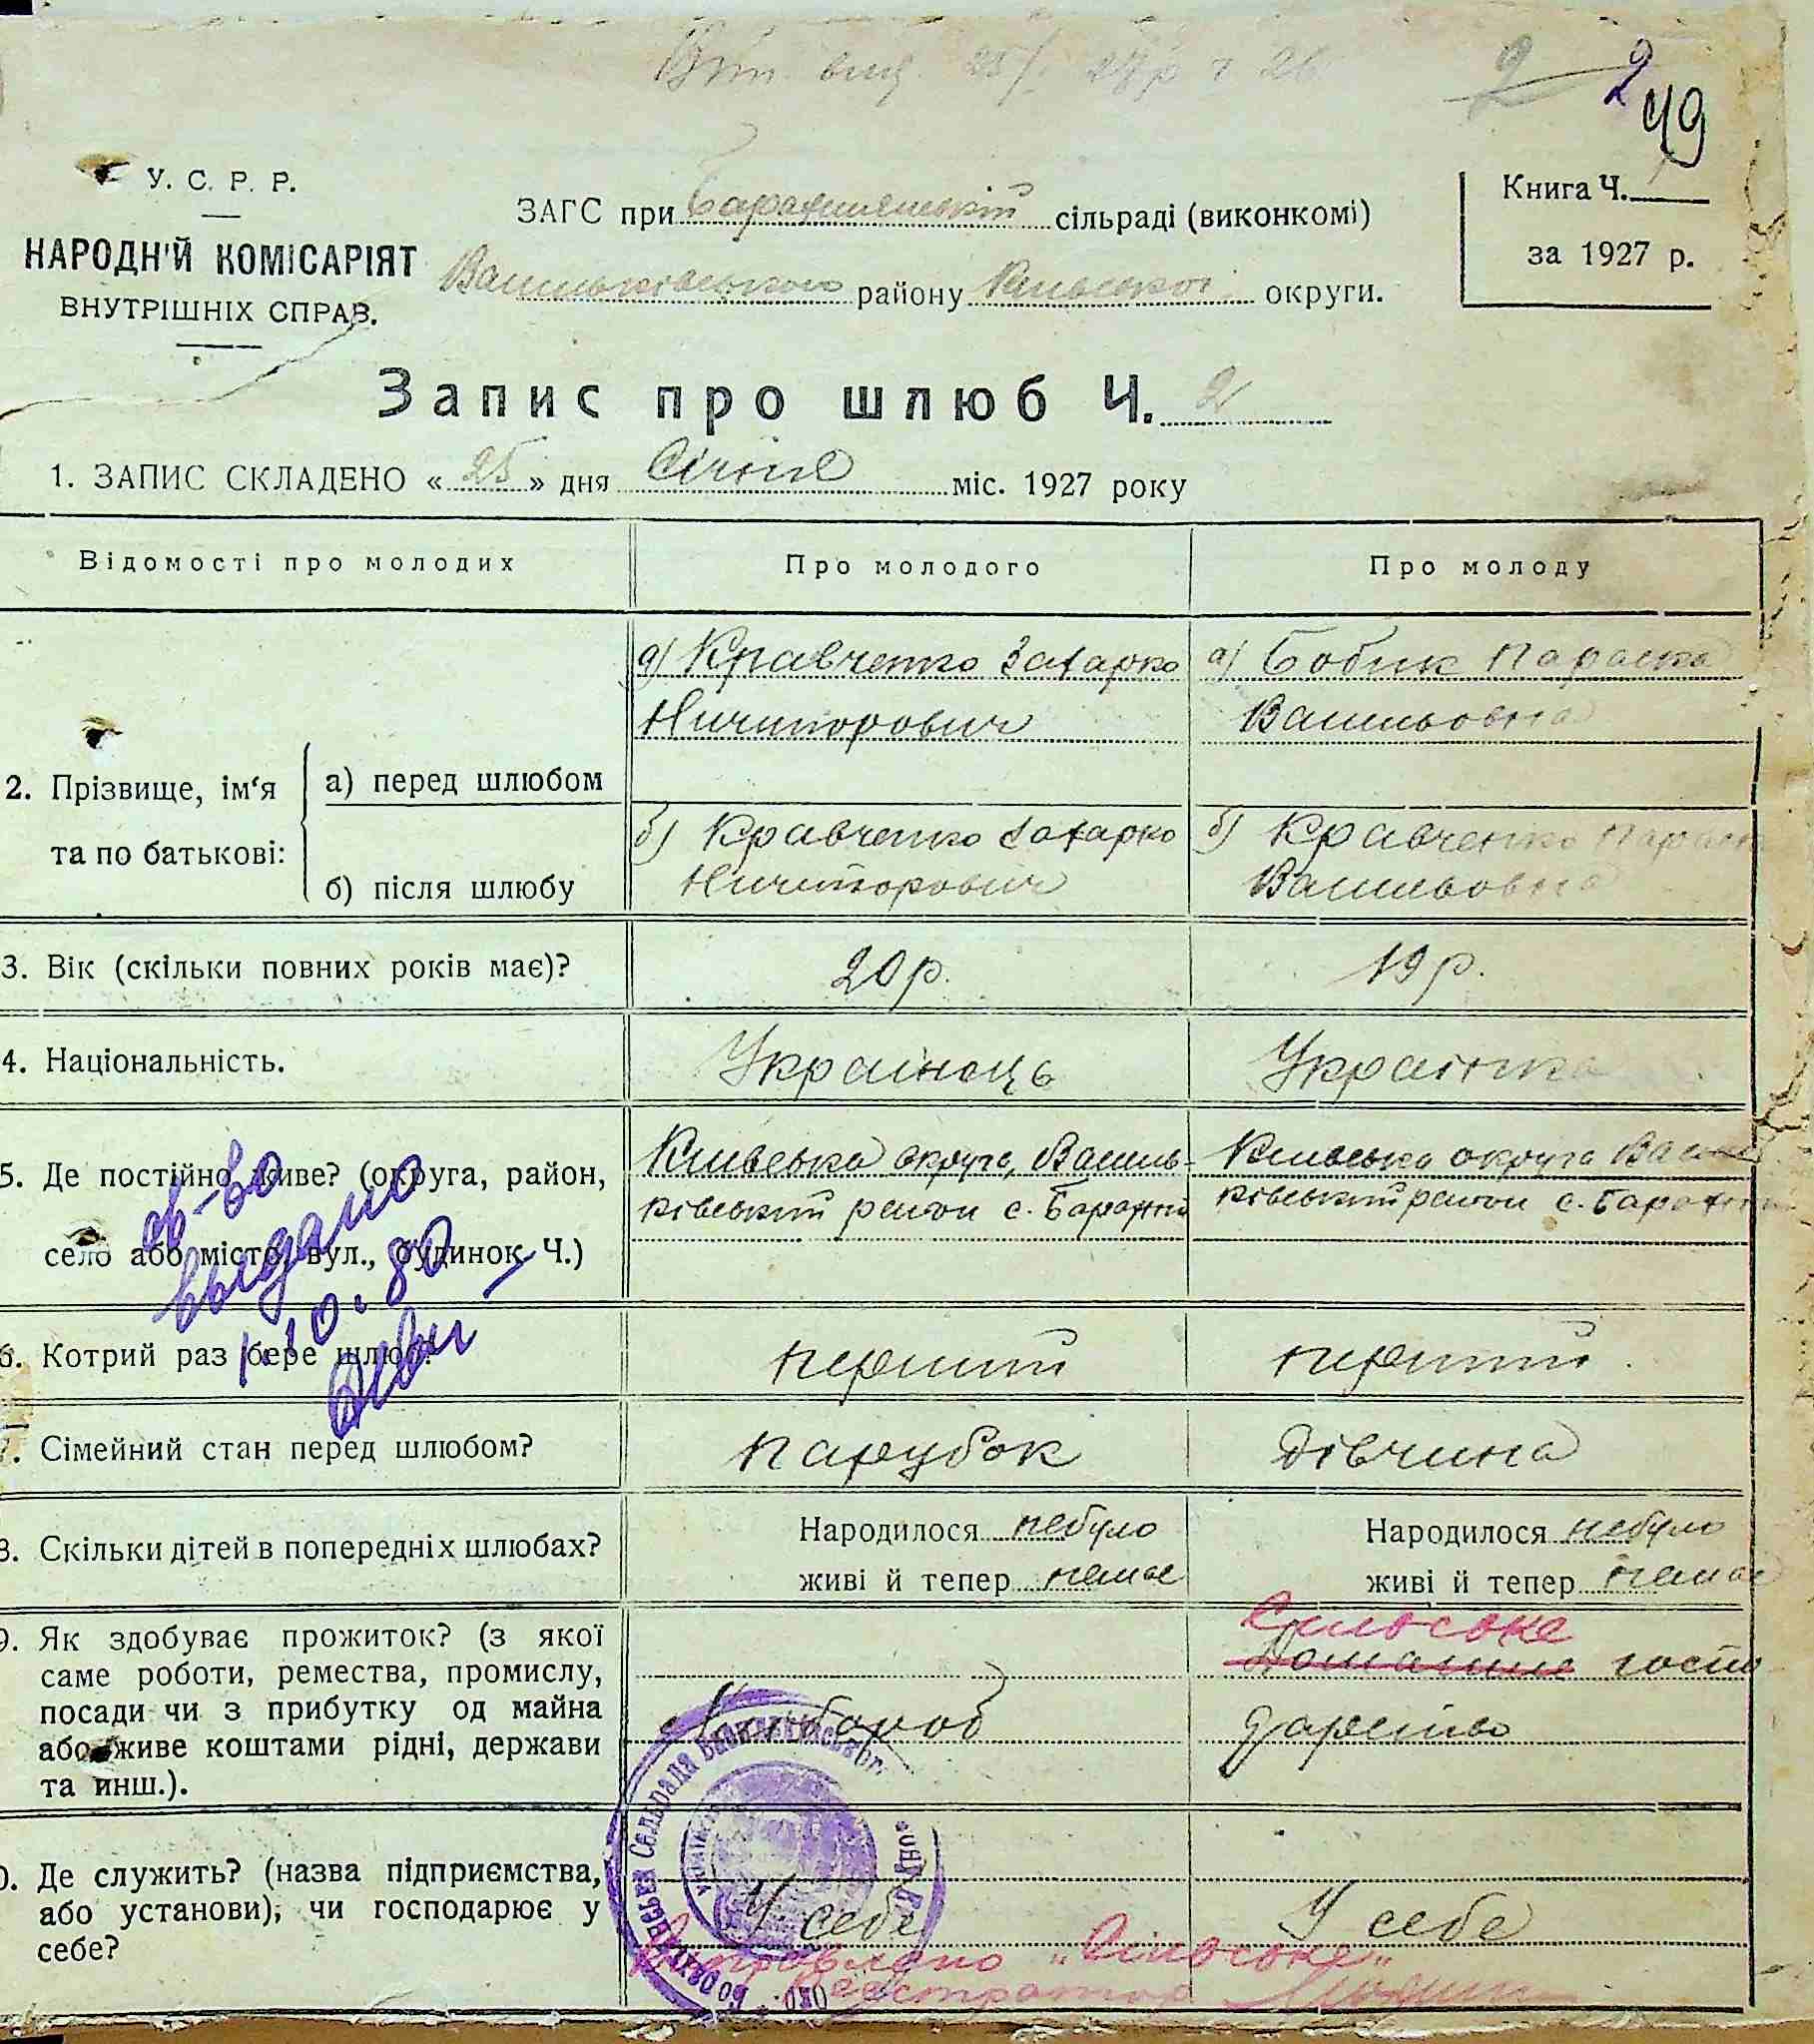 2 2
49
У. С. Р. Р.
НАРОДН'Й КОМІСАРІЯТ
ВНУТРІШНІХ СПРАВ.
ЗАГС при сільраді (виконкомі)
району округи.
Книга Ч.
за 1927 р.
Запис про шлюб Ч. 2
1. ЗАПИС СКЛАДЕНО « 25 » дня Січня міс. 1927 року
Відомості про молодих
Про молодого
Про молоду
2. Прізвище, ім'я
та по батькові:
а) перед шлюбом
б) після шлюбу
а) Кравченко Захарко
Ничипорович
б) Кравченко Захарко
Ничипорович
а) Бобик Параска
Васильовна
б) Кравченко Параск
Васильовна
3. Вік (скільки повних років має)?
20 р.
19 р.
4. Національність.
Українець
Українка
5. Де постійно живе? (округа, район,
село або місто, вул., будинок Ч.)
Київська округа, Василь-
ківський район с.
Київська округа
ківський район с.
св-во
выдано
1.10.80
6. Котрий раз бере шлюб?
перший
перший
7. Сімейний стан перед шлюбом?
парубок
дівчина
8. Скільки дітей в попередніх шлюбах?
Народилося небуло
живі й тепер немає
Народилося небуло
живі й тепер немає
9. Як здобуває прожиток? (з якої
саме роботи, ремества, промислу,
посади чи з прибутку од майна
або живе коштами рідні, держави
та инш.).
Хлібороб
Сильське
Домашнє госпо
дарство
0. Де служить? (назва підприємства,
або установи), чи господарює у
себе?
У себе
У себе
Виправлено „Сільське"
Реєстратор